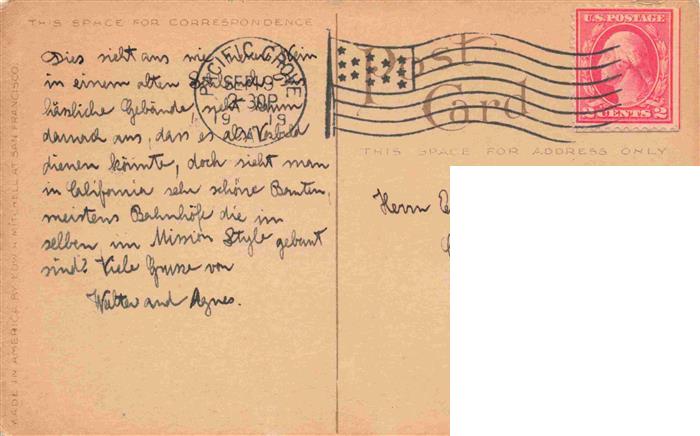 THIS SPACE FOR CORRESPONDENCE
Dies sieht aus wie
in einem alten
hässliche Gebäude sieht
darnach aus, dass es als Vorbild
dienen könnte, doch sieht man
in California sehr schöne Bauten,
meistens Bahnhöfe die im
selben, im Mission Style gebaut
sind? Viele Grüsse von
Walter and Agnes.
MADE IN AMERICA BY EDWARD H. MITCHELL AT SAN FRANCISCO.
PACIFIC GROVE
SEP 19
2 30P
1919
CAL.
Post
Card
THIS SPACE FOR ADDRESS ONLY
U.S. POSTAGE
2 CENTS 2
Herrn